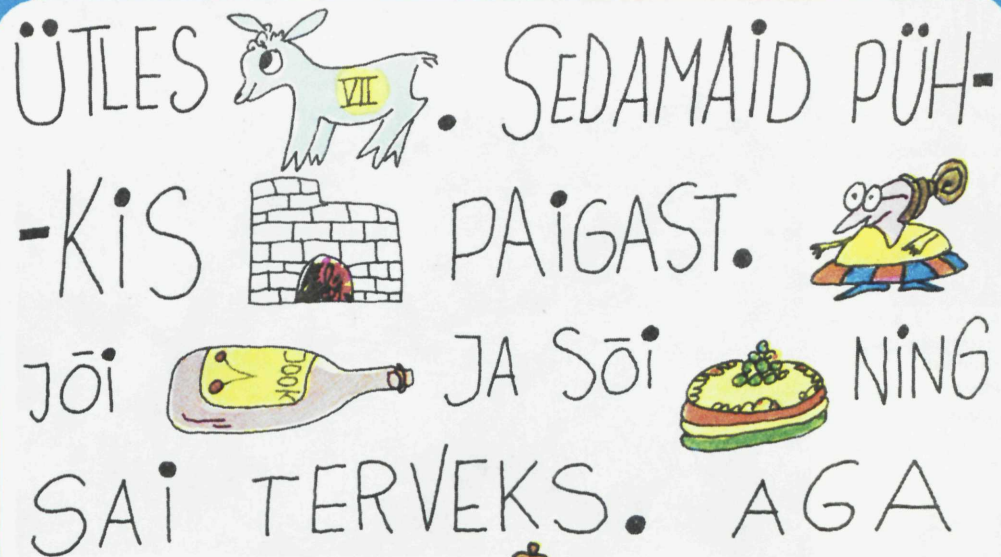 ÜTLES VII . SEDAMAID PÜH-
-KIS PAIGAST.
JÕI JOOK JA SÕI NING
SAI TERVEKS. AGA